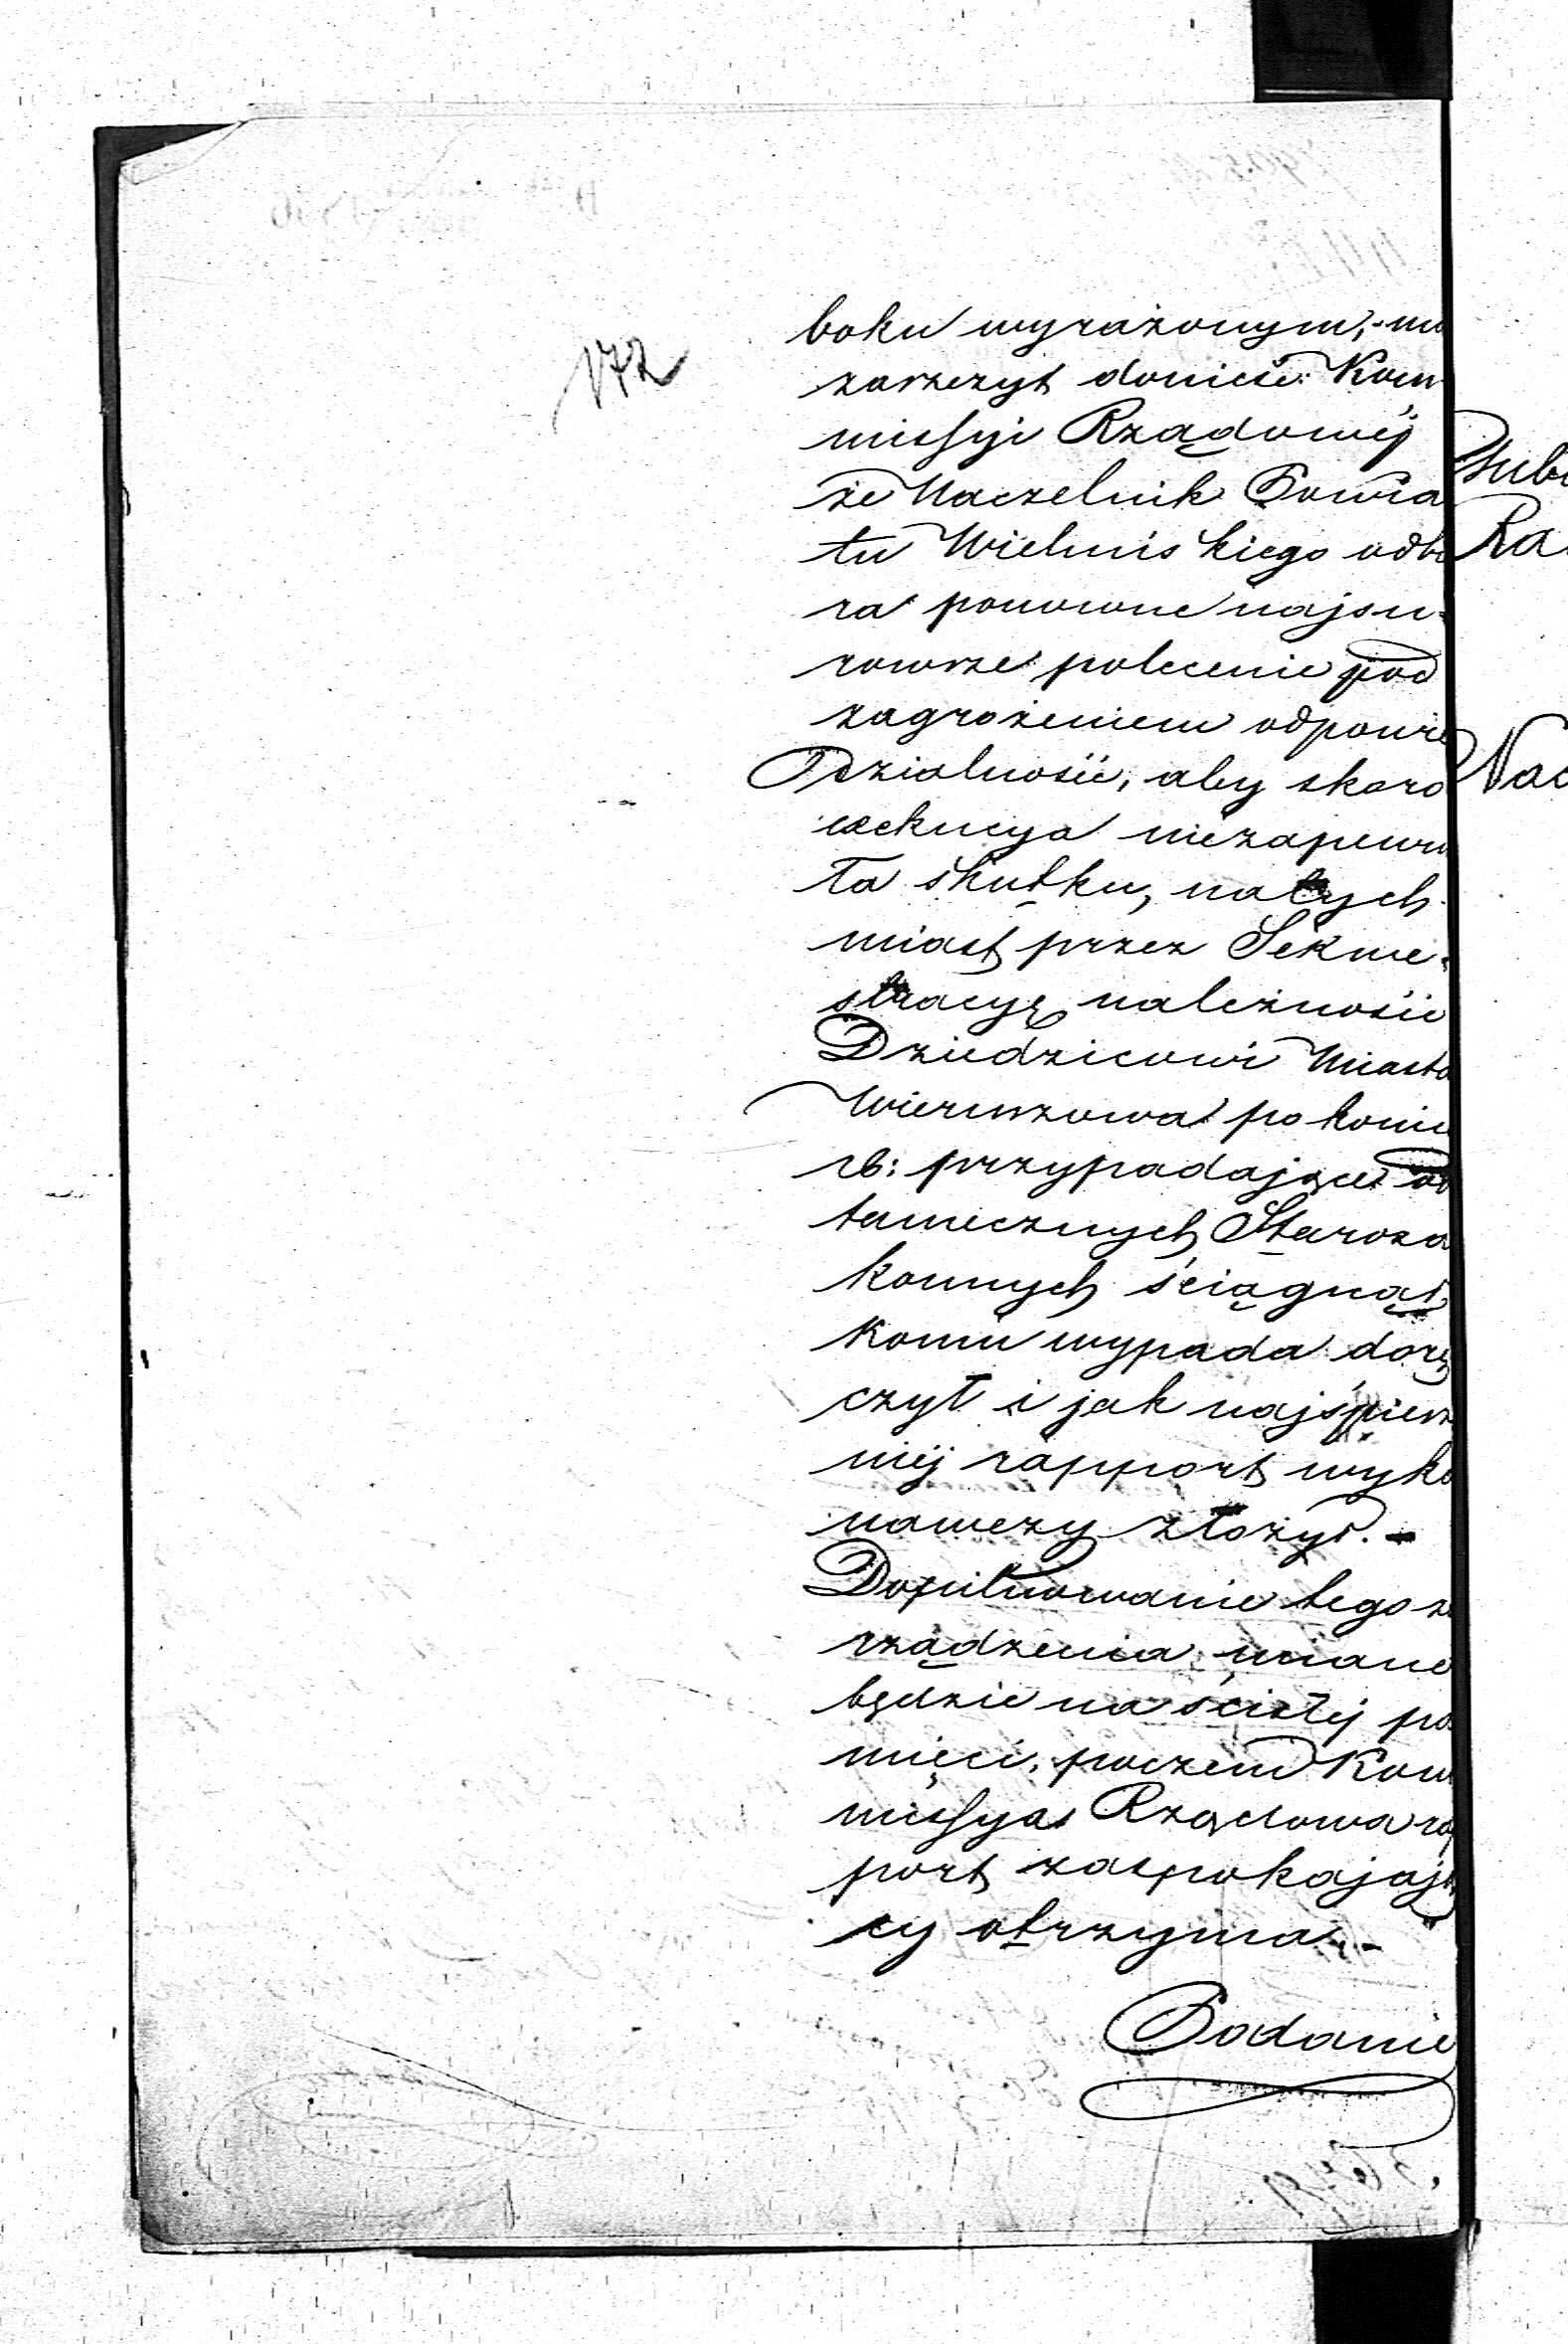 172
boku wyrażonym, ma
zaszczyt donieść Kom
missyi Rządowéj
że Naczelnik Powia
tu Wieluńskiego odbi
ra ponowne najsu-
rowsze polecenie pod
zagrożeniem odpowie
dzialności, aby skoro
exekucya niezapewni
ła skutku, natych-
miast przez Sekwe-
stracyę należności
Dziedzicowi Miasta
Wieruszowa po koniec
rb: przypadające od
tamecznych Staroza
konnych ściągnął,
komu wypada dorę
czył i jak najśpiesz
niéj rapport wyko
nawczy złożył. -
Dopilnowanie tego za
rządzenia, miane
będzie na ścisłéj pa
mięci, poczem Kom
missya Rządowa rap
port zaspokajają
cy otrzyma. -
Podanie
Ra
Nac